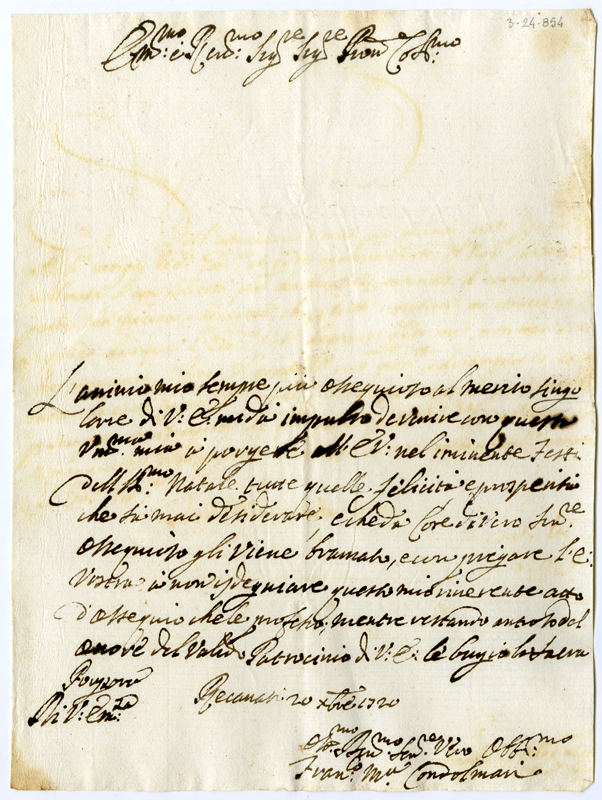 3-24-854
Em:mo e Rev:mo Sig:re Sig:re Pron Col:mo
L'animo mio sempre più ossequioso al merito singo
lare di V: E: mi dà impulso de venire con questa
Um:ma mia a porgere all'E V: nel iminente Feste
dell SS:mo Natale tutte quelle felicità e prosperità
che sà mai desiderare, e che dà Core di vero Ser:re
ossequioso gli viene bramato, e con pregare l'E:
Vostra à non isdegniare questo mio riverente atto
d'ossequio che le professo, mentre restando
onore del Valido Patrocinio di V: E: le bagio la Sacra
Porpora
Di V: Em:za
Recanati 20 Xbre 1720
Ser:re Vero Obb:mo
Fran:o M:a Condolmari